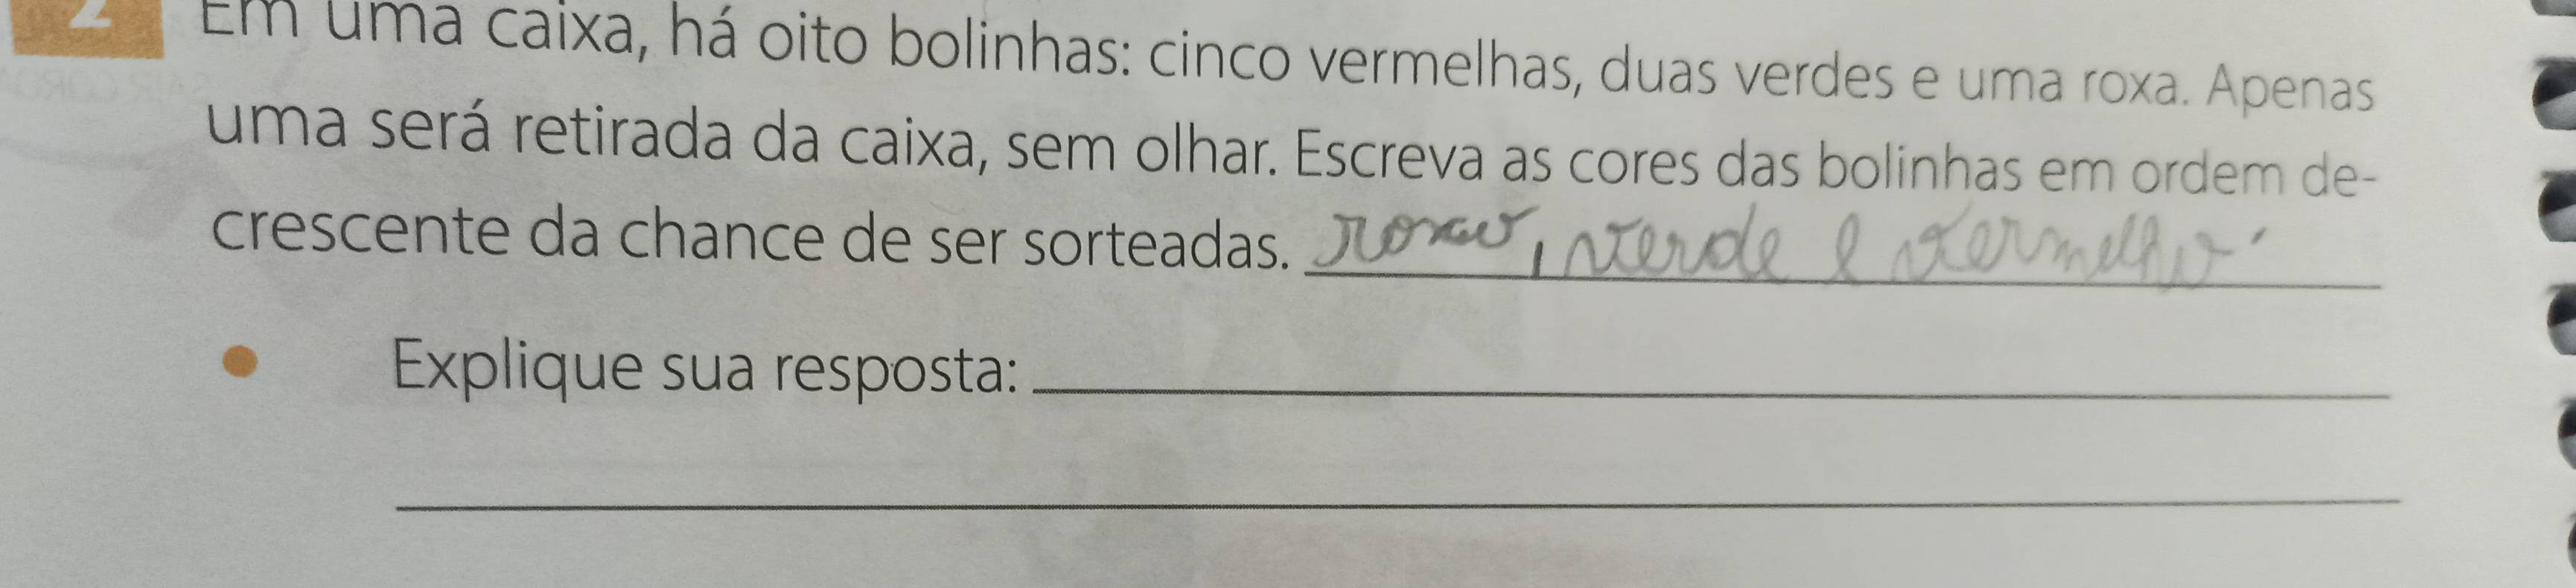 2 Em uma caixa, há oito bolinhas: cinco vermelhas, duas verdes e uma roxa. Apenas
uma será retirada da caixa, sem olhar. Escreva as cores das bolinhas em ordem de-
crescente da chance de ser sorteadas. roxa, verde e vermelha.
Explique sua resposta: